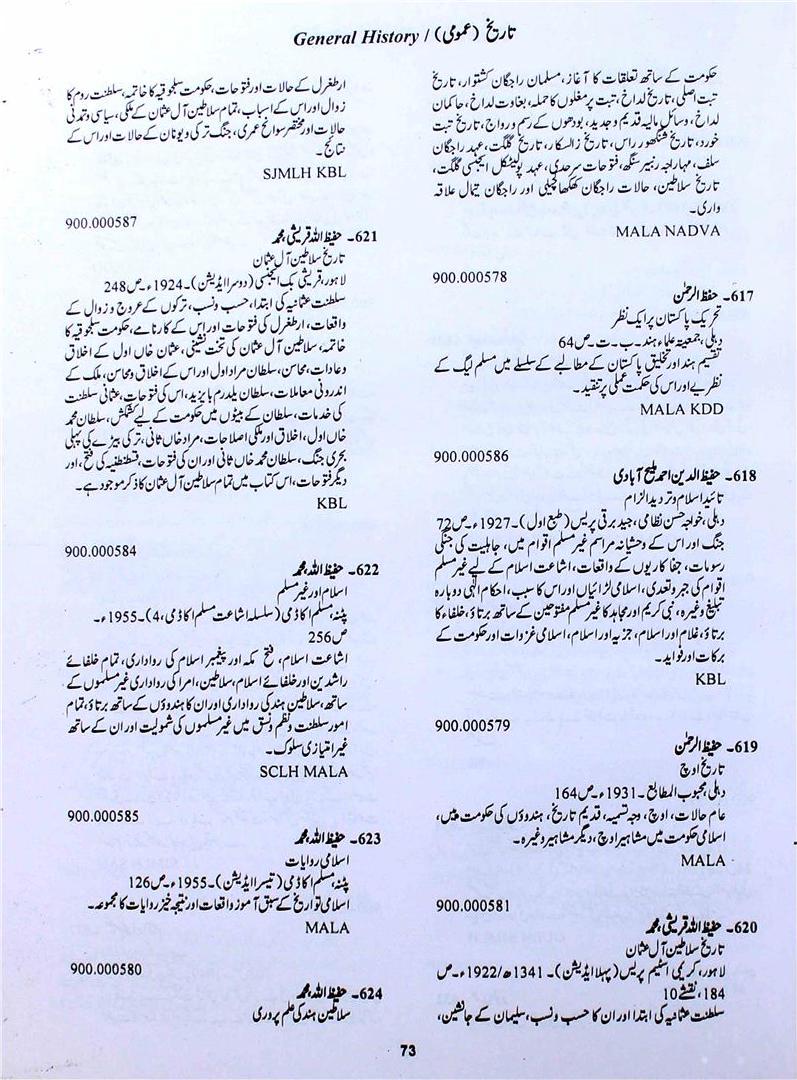 General History / تاریخ (عمومی)
حکومت کے ساتھ تعلقات کا آغاز، مسلمان راجگان کشتوار، تاریخ
تبت اصلی، تاریخ لداخ، تبت پر مغلوں کا حملہ، بغاوت لداخ، حاکمان
لداخ، وسائل مالیہ قدیم و جدید، بودھوں کے رسم و رواج، تاریخ تبت
خورد، تاریخ شنکھور راس، تاریخ زالسکار، تاریخ گلگت، عہد راجگان
سلف، مہاراجہ رنبیر سنگھ، فتوحات سرحدی، عہد پولیٹکل ایجنسی گلگت،
تاریخ سلاطین، حالات راجگان کھکھا و راجگان جبال علاقہ
واری۔
MALA NADVA
900.000578
617۔ حفظ الرحمٰن
تحریک پاکستان پر ایک نظر
دہلی، جمعیۃ علماء ہند۔ ب۔ت۔ ص64
تقسیم ہند اور تخلیق پاکستان کے مطالبے کے سلسلے میں مسلم لیگ کے
نظریے اور اس کی حکمت عملی پر تنقید۔
MALA KDD
900.000586
618۔ حفیظ الدین احمد ملیح آبادی
تائید اسلام و تردید الزام
دہلی، خواجہ حسن نظامی، جید برقی پریس (طبع اول)۔ 1927ء۔ ص72
جنگ اور اس کے وحشیانہ مراسم غیر مسلم اقوام میں، جاہلیت کی جنگی
رسومات، جفا کاریوں کے واقعات، اشاعت اسلام کے لیے غیر مسلم
اقوام کی جبر و تعدی، اسلامی لڑائیاں اور اس کا سبب، احکام الٰہی دوبارہ
تبلیغ وغیرہ، نبی کریم اور مجاہد کا غیر مسلم مفتوحین کے ساتھ برتاؤ، خلفاء کا
برتاؤ، غلام اور اسلام، جزیہ اور اسلام، اسلامی غزوات اور حکومت کے
برکات اور فواید۔
KBL
900.000579
619۔ حفیظ الرحمٰن
تاریخ اوچ
دہلی، محبوب المطابع۔ 1931ء۔ ص164
عام حالات، اوچ، وجہ تسمیہ، قدیم تاریخ، ہندوؤں کی حکومت میں،
اسلامی حکومت میں مشاہیر اوچ، دیگر مشاہیر وغیرہ۔
MALA
900.000581
620۔ حفیظ اللہ قریشی، محمد
تاریخ سلاطین آل عثمان
لاہور، کریمی اسٹیم پریس (پہلا ایڈیشن)۔ 1341ھ/1922ء۔ ص
184، نقشے10
سلطنت عثمانیہ کی ابتدا اور ان کا حسب ونسب، سلیمان کے جانشین،
ارطغرل کے حالات اور فتوحات، حکومت سلجوقیہ کا خاتمہ، سلطنت روم کا
زوال اور اس کے اسباب، تمام سلاطین آل عثمان کے ملکی، سیاسی و تمدنی
حالات اور مختصر سوانح عمری، جنگ ترکی و یونان کے حالات اور اس کے
نتائج۔
SJMLH KBL
900.000587
621۔ حفیظ اللہ قریشی، محمد
تاریخ سلاطین آل عثمان
لاہور، قریشی بک ایجنسی (دوسرا ایڈیشن)۔ 1924ء۔ ص248
سلطنت عثمانیہ کی ابتدا، حسب ونسب، ترکوں کے عروج و زوال کے
واقعات، ارطغرل کی فتوحات اور اس کے کارنامے، حکومت سلجوقیہ کا
خاتمہ، سلاطین آل عثمان کی تخت نشینی، عثمان خاں اول کے اخلاق
وعادات، محاسن، سلطان مراد اول اور اس کے اخلاق ومحاسن، ملک کے
اندرونی معاملات، سلطان یلدرم بایزید، اس کی فتوحات، عثمانی سلطنت
کی خدمات، سلطان کے بیٹوں میں حکومت کے لیے کشمکش، سلطان محمد
خاں اول، اخلاق اور ملکی اصلاحات، مراد خاں ثانی، ترکی بیڑے کی پہلی
بحری جنگ، سلطان محمد خاں ثانی اور ان کی فتوحات، قسطنطنیہ کی فتح، اور
دیگر فتوحات، اس کتاب میں تمام سلاطین آل عثمان کا ذکر موجود ہے۔
KBL
900.000584
622۔ حفیظ اللہ، محمد
اسلام اور غیر مسلم
پٹنہ، مسلم اکاڈمی (سلسلہ اشاعت مسلم اکاڈمی، 4)۔ 1955ء۔
ص256
اشاعت اسلام، فتح مکہ اور پیغمبر اسلام کی رواداری، تمام خلفائے
راشدین اور خلفائے اسلام، سلاطین، امرا کی رواداری غیر مسلموں کے
ساتھ، سلاطین ہند کی رواداری اور ان کا ہندوؤں کے ساتھ برتاؤ، تمام
امور سلطنت و نظم ونسق میں غیر مسلموں کی شمولیت اور ان کے ساتھ
غیر امتیازی سلوک۔
SCLH MALA
900.000585
623۔ حفیظ اللہ، محمد
اسلامی روایات
پٹنہ، مسلم اکاڈمی (تیسرا ایڈیشن)۔ 1955ء۔ ص126
اسلامی تواریخ کے سبق آموز واقعات اور نتیجہ خیز روایات کا مجموعہ۔
MALA
900.000580
624۔ حفیظ اللہ، محمد
سلاطین ہند کی علم پروری
73